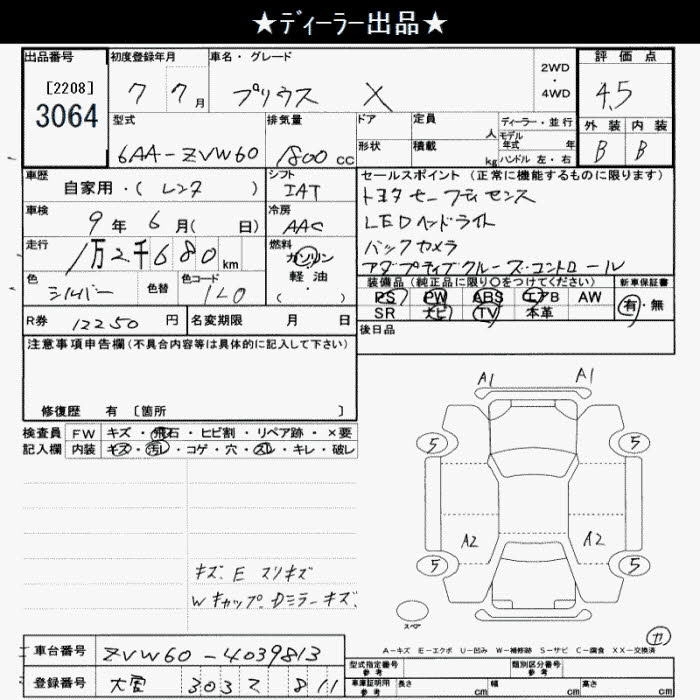 ★ディーラー出品★
出品番号 初度登録年月 車名・グレード 2WD ・ 4WD 評価点
[2208]
3064
7 7月 プリウス X 4.5
型式 排気量 ドア 定員 人 ディーラー・並行 外装 内装
6AA-ZVW60 1800 CC 形状 積載 kg モデル年式 年 ハンドル 左・右 B B
車歴 自家用・(レンタ) シフト IAT セールスポイント(正常に機能するものに限ります)
車検 9年 6月( 日) 冷房 AAC トヨタセーフティセンス
LEDヘッドライト
走行 1万2千680km 燃料 ガソリン バックカメラ
軽油 アダプティブクルーズコントロール
色 シルバー 色替 色コード 1L0 ( ・ ) 装備品(純正品に限り○をつけてください) 新車保証書
PS PW ABS エアB AW 有・無
R券 12250円 名変期限 月 日 SR ナビ TV 本革
後日品
注意事項申告欄(不具合内容等は具体的に記入して下さい)
修復歴 有 〔箇所 〕
検査員 FW キズ・飛石・ヒビ割・リペア跡・×要
記入欄 内装 キズ・汚レ・コゲ・穴・スレ・キレ・破レ
A1 A1
5 5
A2 A2
5 5
キズ.E スリキズ
Wキャップ.Dミラーキズ.
スペア
カ
A-キズ E-エクボ U-凹み W-補修跡 S-サビ C-腐食 XX-交換済
車台番号 ZVW60-4039813
型式指定番号 参考 類別区分番号 参考
登録番号 大宮 303 ワ 811 車庫証明用 参考 長さ cm 幅 cm 高さ cm